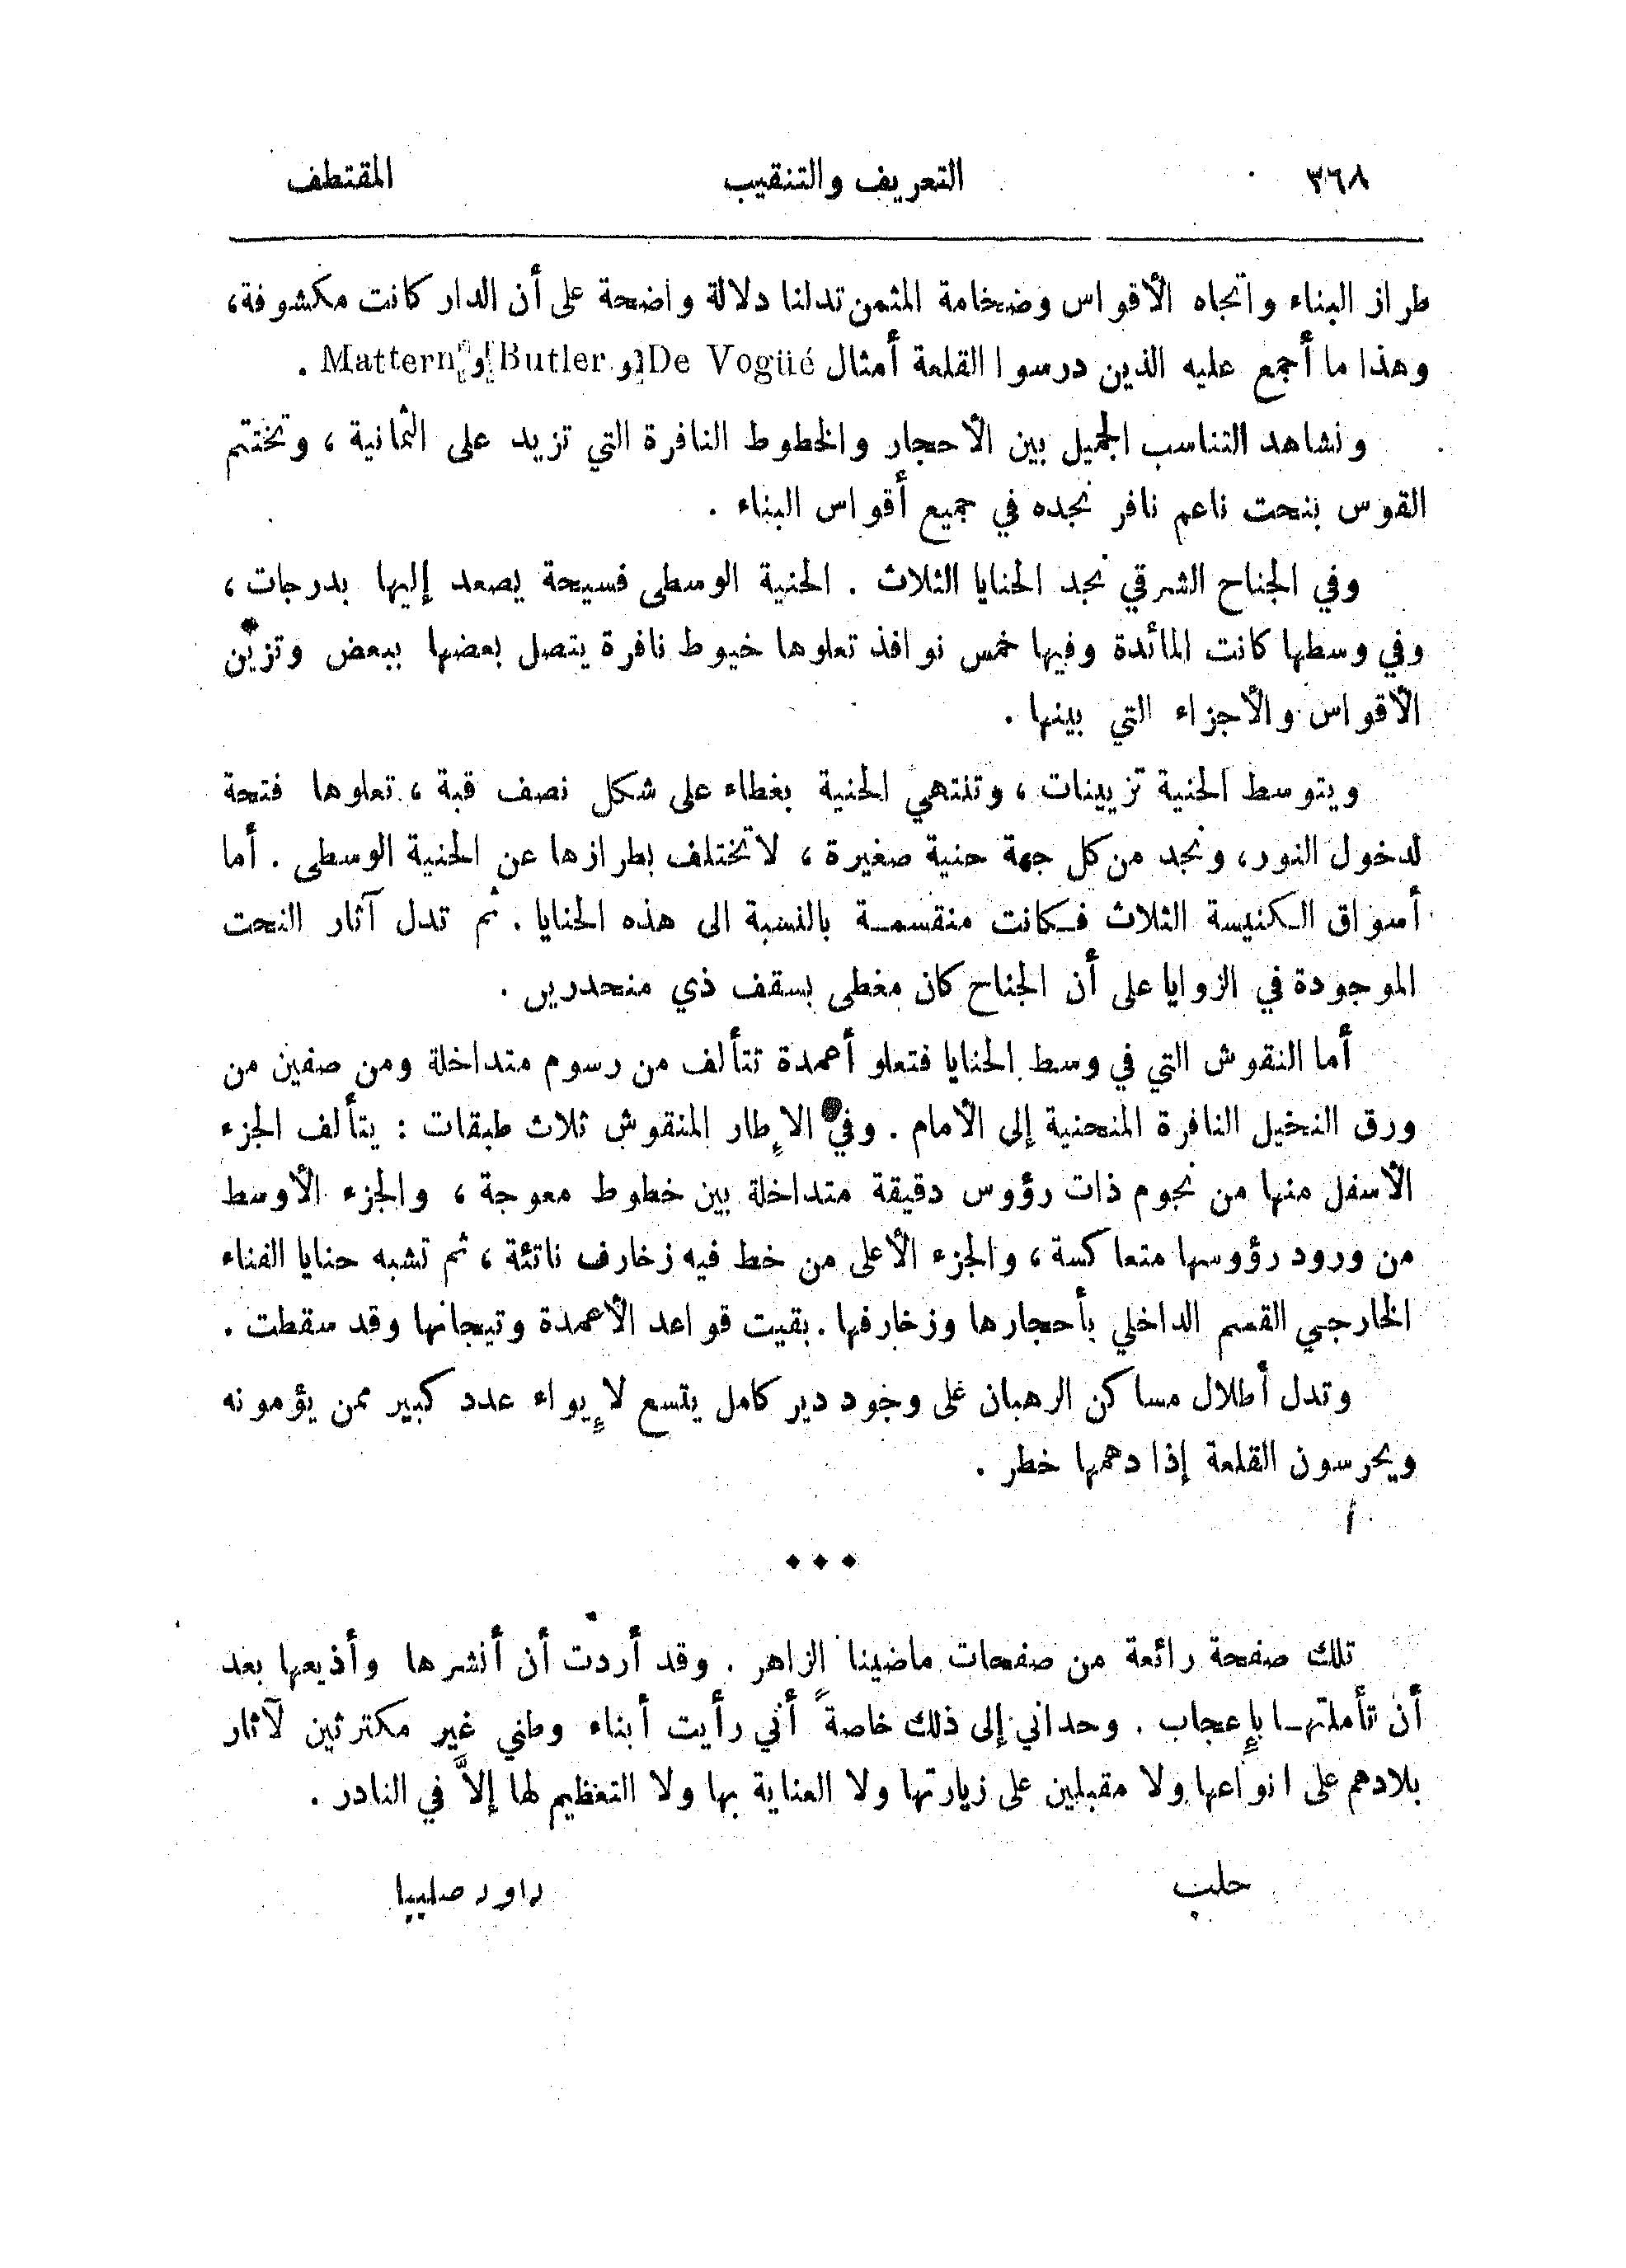 ٣٦٨ التعريف والتنقيب المقتطف
طراز البناء واتجاه الأقواس وضخامة المثمن تدلنا دلالة واضحة على أن الدار كانت مكشوفة،
وهذا ما أجمع عليه الذين درسوا القلعة أمثال De Vogüé و Butler و Mattern .
ونشاهد التناسب الجميل بين الأحجار والخطوط النافرة التي تزيد على الثمانية ، وتختتم
القوس بنحت ناعم نافر نجده في جميع أقواس البناء .
وفي الجناح الشرقي نجد الحنايا الثلاث . الحنية الوسطى فسيحة يصعد إليها بدرجات ،
وفي وسطها كانت المائدة وفيها خمس نوافذ تعلوها خيوط نافرة يتصل بعضها ببعض وتزين
الأقواس والأجزاء التي بينها .
ويتوسط الحنية تزيينات ، وتنتهي الحنية بغطاء على شكل نصف قبة ، تعلوها فتحة
لدخول النور ، ونجد من كل جهة حنية صغيرة ، لا تختلف بطرازها عن الحنية الوسطى . أما
أسواق الكنيسة الثلاث فكانت منقسمة بالنسبة الى هذه الحنايا . ثم تدل آثار النحت
الموجودة في الزوايا على أن الجناح كان مغطى بسقف ذي منحدرين .
أما النقوش التي في وسط الحنايا فتعلو أعمدة تتألف من رسوم متداخلة ومن صفين من
ورق النخيل النافرة المنحنية إلى الأمام . وفي الإطار المنقوش ثلاث طبقات : يتألف الجزء
الأسفل منها من نجوم ذات رؤوس دقيقة متداخلة بين خطوط معوجة ، والجزء الأوسط
من ورود رؤوسها متعاكسة ، والجزء الأعلى من خط فيه زخارف ناتئة ، ثم تشبه حنايا الفناء
الخارجي القسم الداخلي بأحجارها وزخارفها . بقيت قواعد الأعمدة وتيجانها وقد سقطت .
وتدل أطلال مساكن الرهبان على وجود دير كامل يتسع لإيواء عدد كبير ممن يؤمونه
ويحرسون القلعة إذا دهمها خطر .
تلك صفحة رائعة من صفحات ماضينا الزاهر . وقد أردت أن أنشرها وأذيعها بعد
أن تأملتها بإعجاب . وحداني إلى ذلك خاصةً أنني رأيت أبناء وطني غير مكترثين لآثار
بلادهم على انواعها ولا مقبلين على زيارتها ولا العناية بها ولا التعظيم لها إلاَّ في النادر .
حلب داود صليبا